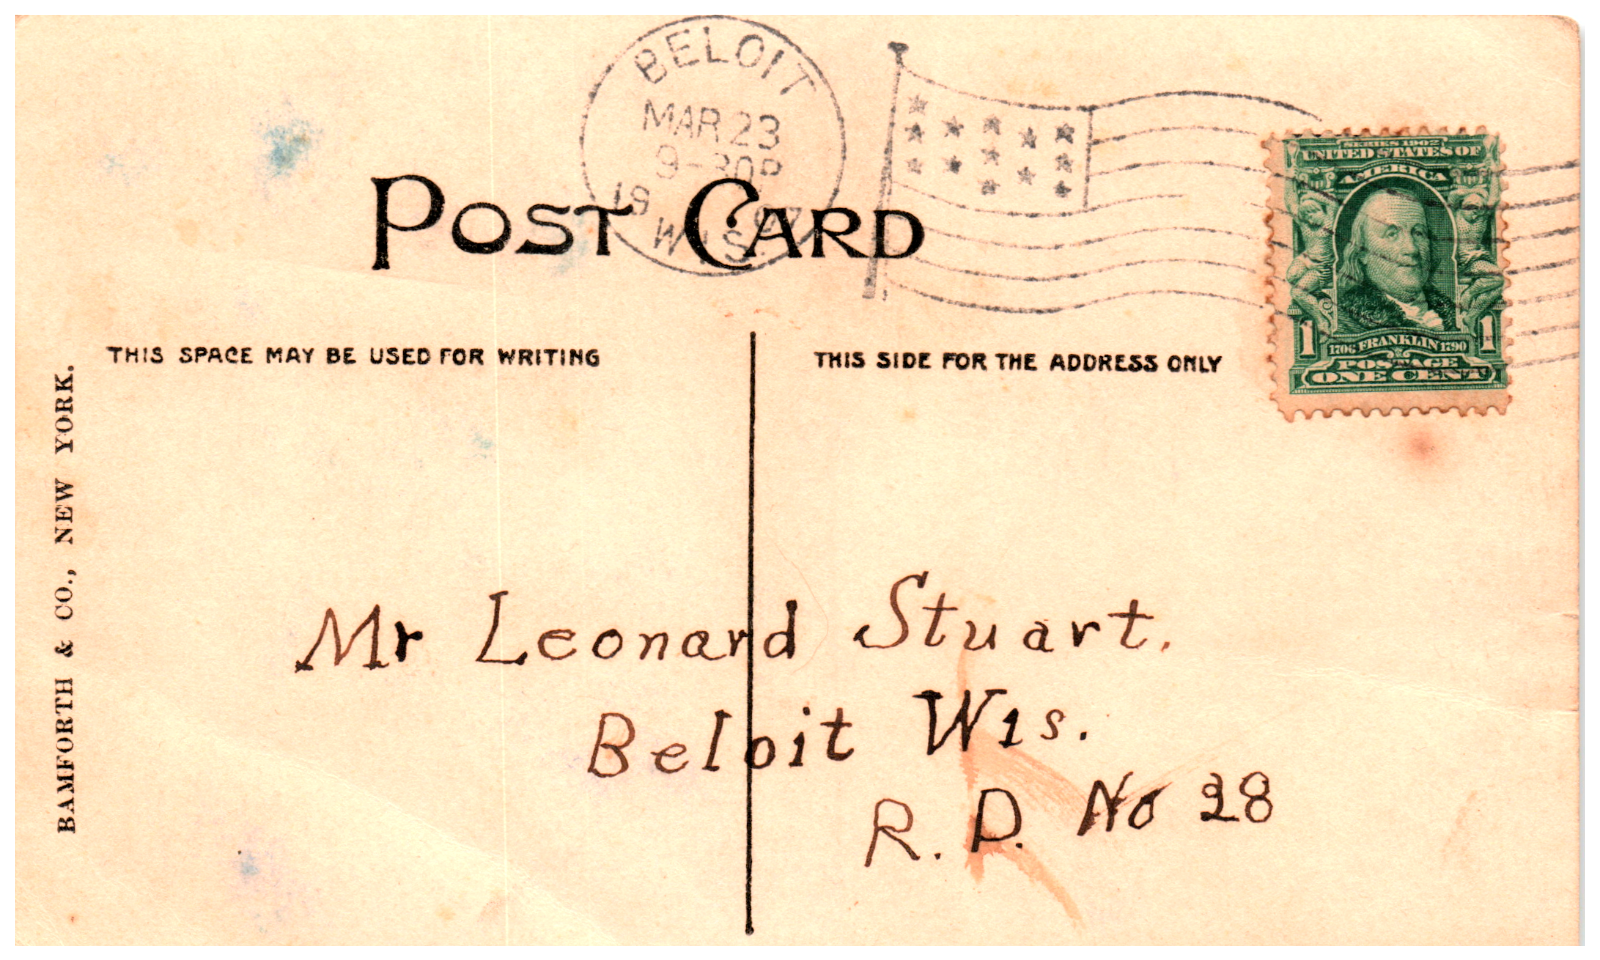 BELOIT
MAR 23
9-30P
19 07
WIS.
POST CARD
SERIES 1902
UNITED STATES OF
AMERICA
1 1
1706 FRANKLIN 1790
POSTAGE
ONE CENT
THIS SPACE MAY BE USED FOR WRITING
THIS SIDE FOR THE ADDRESS ONLY
BAMFORTH & CO., NEW YORK.
Mr Leonard Stuart.
Beloit Wis.
R. D. No 28